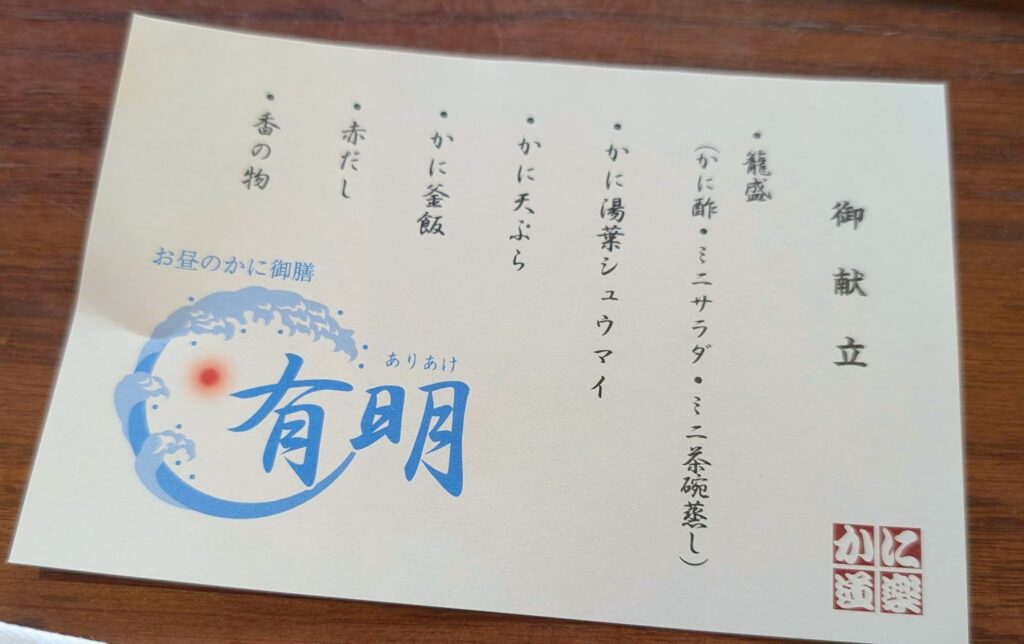 御献立
・籠盛
（かに酢・ミニサラダ・ミニ茶碗蒸し）
・かに湯葉シュウマイ
・かに天ぷら
・かに釜飯
・赤だし
・香の物
お昼のかに御膳
ありあけ
有明
かに道楽